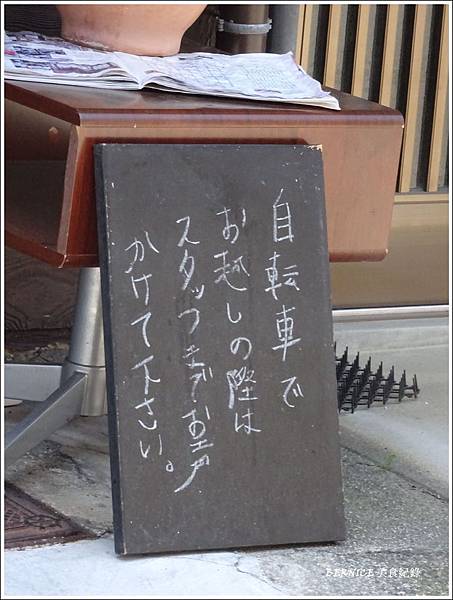 自転車で
お越しの際は
スタッフまでお声
かけて下さい。
BERNICE 美食紀錄